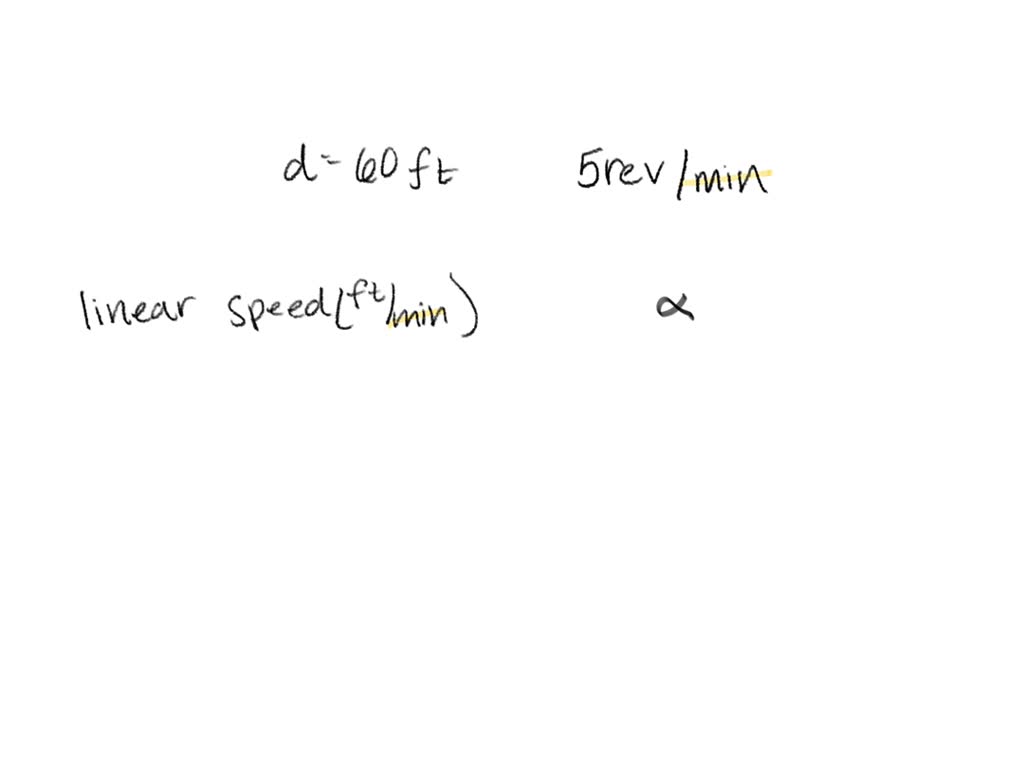 d = 60 ft 5rev/min
linear speed (ft/min) α